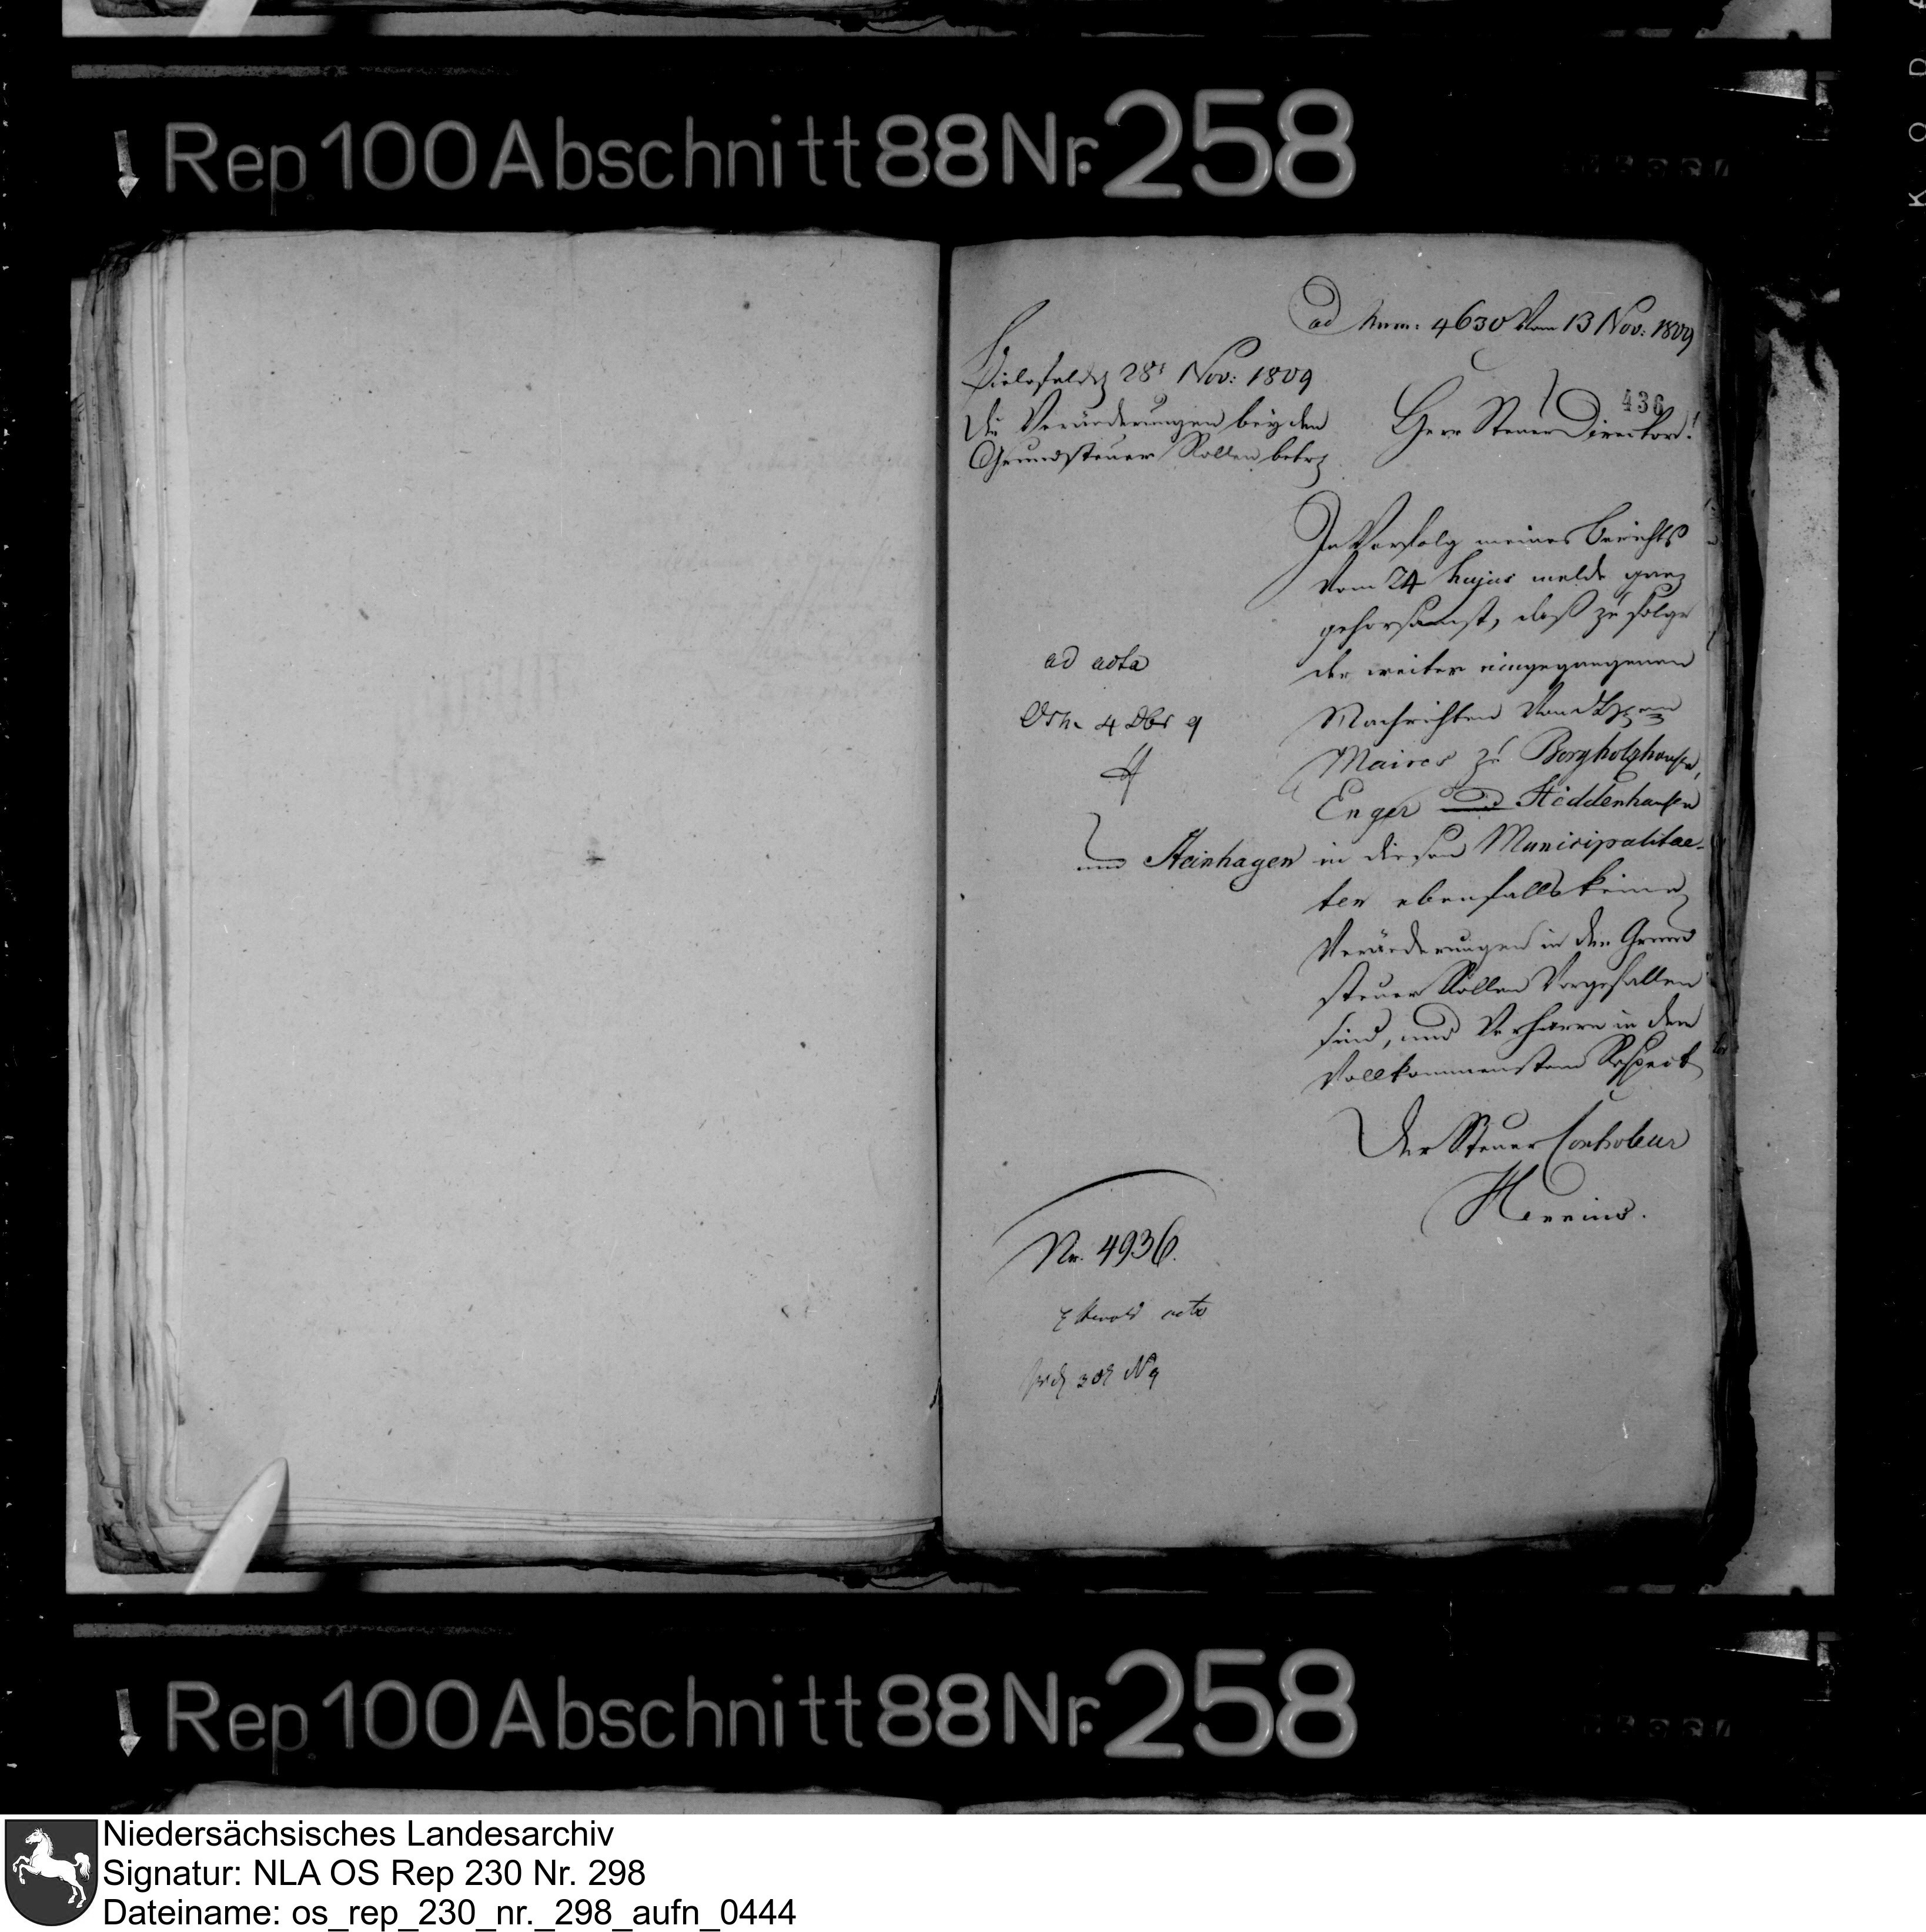 Rep 100 Abschnitt 88 Nr. 258
ad Num: 4630 Vom 13 Nov: 1809
Bielefeld 28t Nov: 1809
Die Veränderungen bey den
Grundsteuer Rollen betr
436
Herr Steuer Director!
In Verfolg meines Berichts
Vom 24 hujus melde ganz
gehorsamst, daß zu folge
der weiter eingegangenen
Nachrichten Von
Maires zu Borgholzhausen,
Enger und Hiddenhausen
und Steinhagen in diesen Municipalitae-
ten ebenfalls keine
Veränderungen in den Grund
steuer Rollen Vorgefallen
sind, und Verharre in dem
Vollkommensten Respect
Der Steuer Controleur
ad acta
Osn. 4 Dbr 9
Nr. 4936.
Rep 100 Abschnitt 88 Nr. 258
Niedersächsisches Landesarchiv
Signatur: NLA OS Rep 230 Nr. 298
Dateiname: os_rep_230_nr._298_aufn_0444